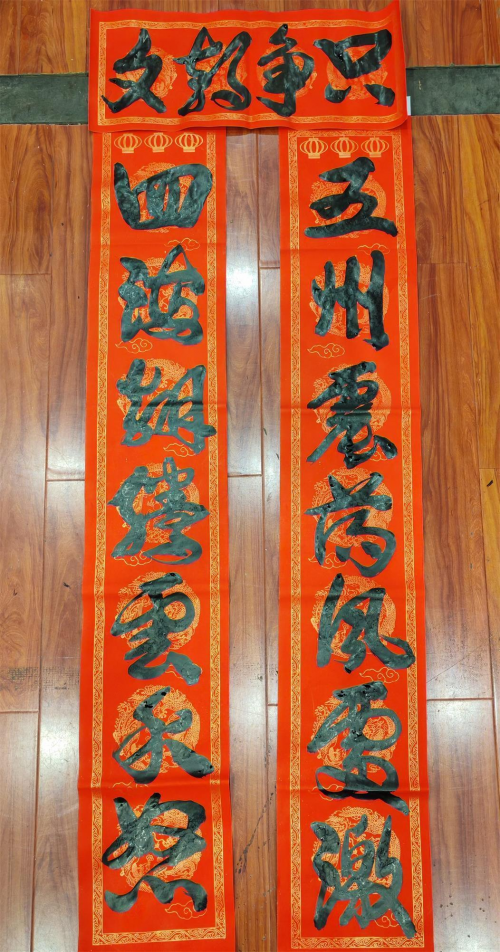 只争朝夕
五州震荡风雷激
四海翻腾雲水怒